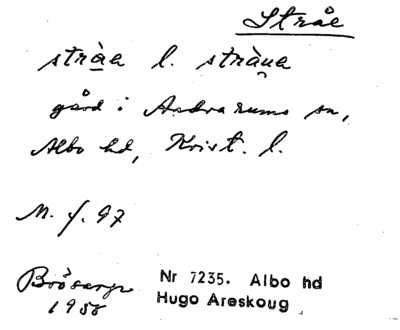 Stråe
stràa l. stràna
gård i Andrarums sn,
Albo hd, Krist. l.
M. f. 97
Brösarp
1958
Nr 7235. Albo hd
Hugo Areskoug